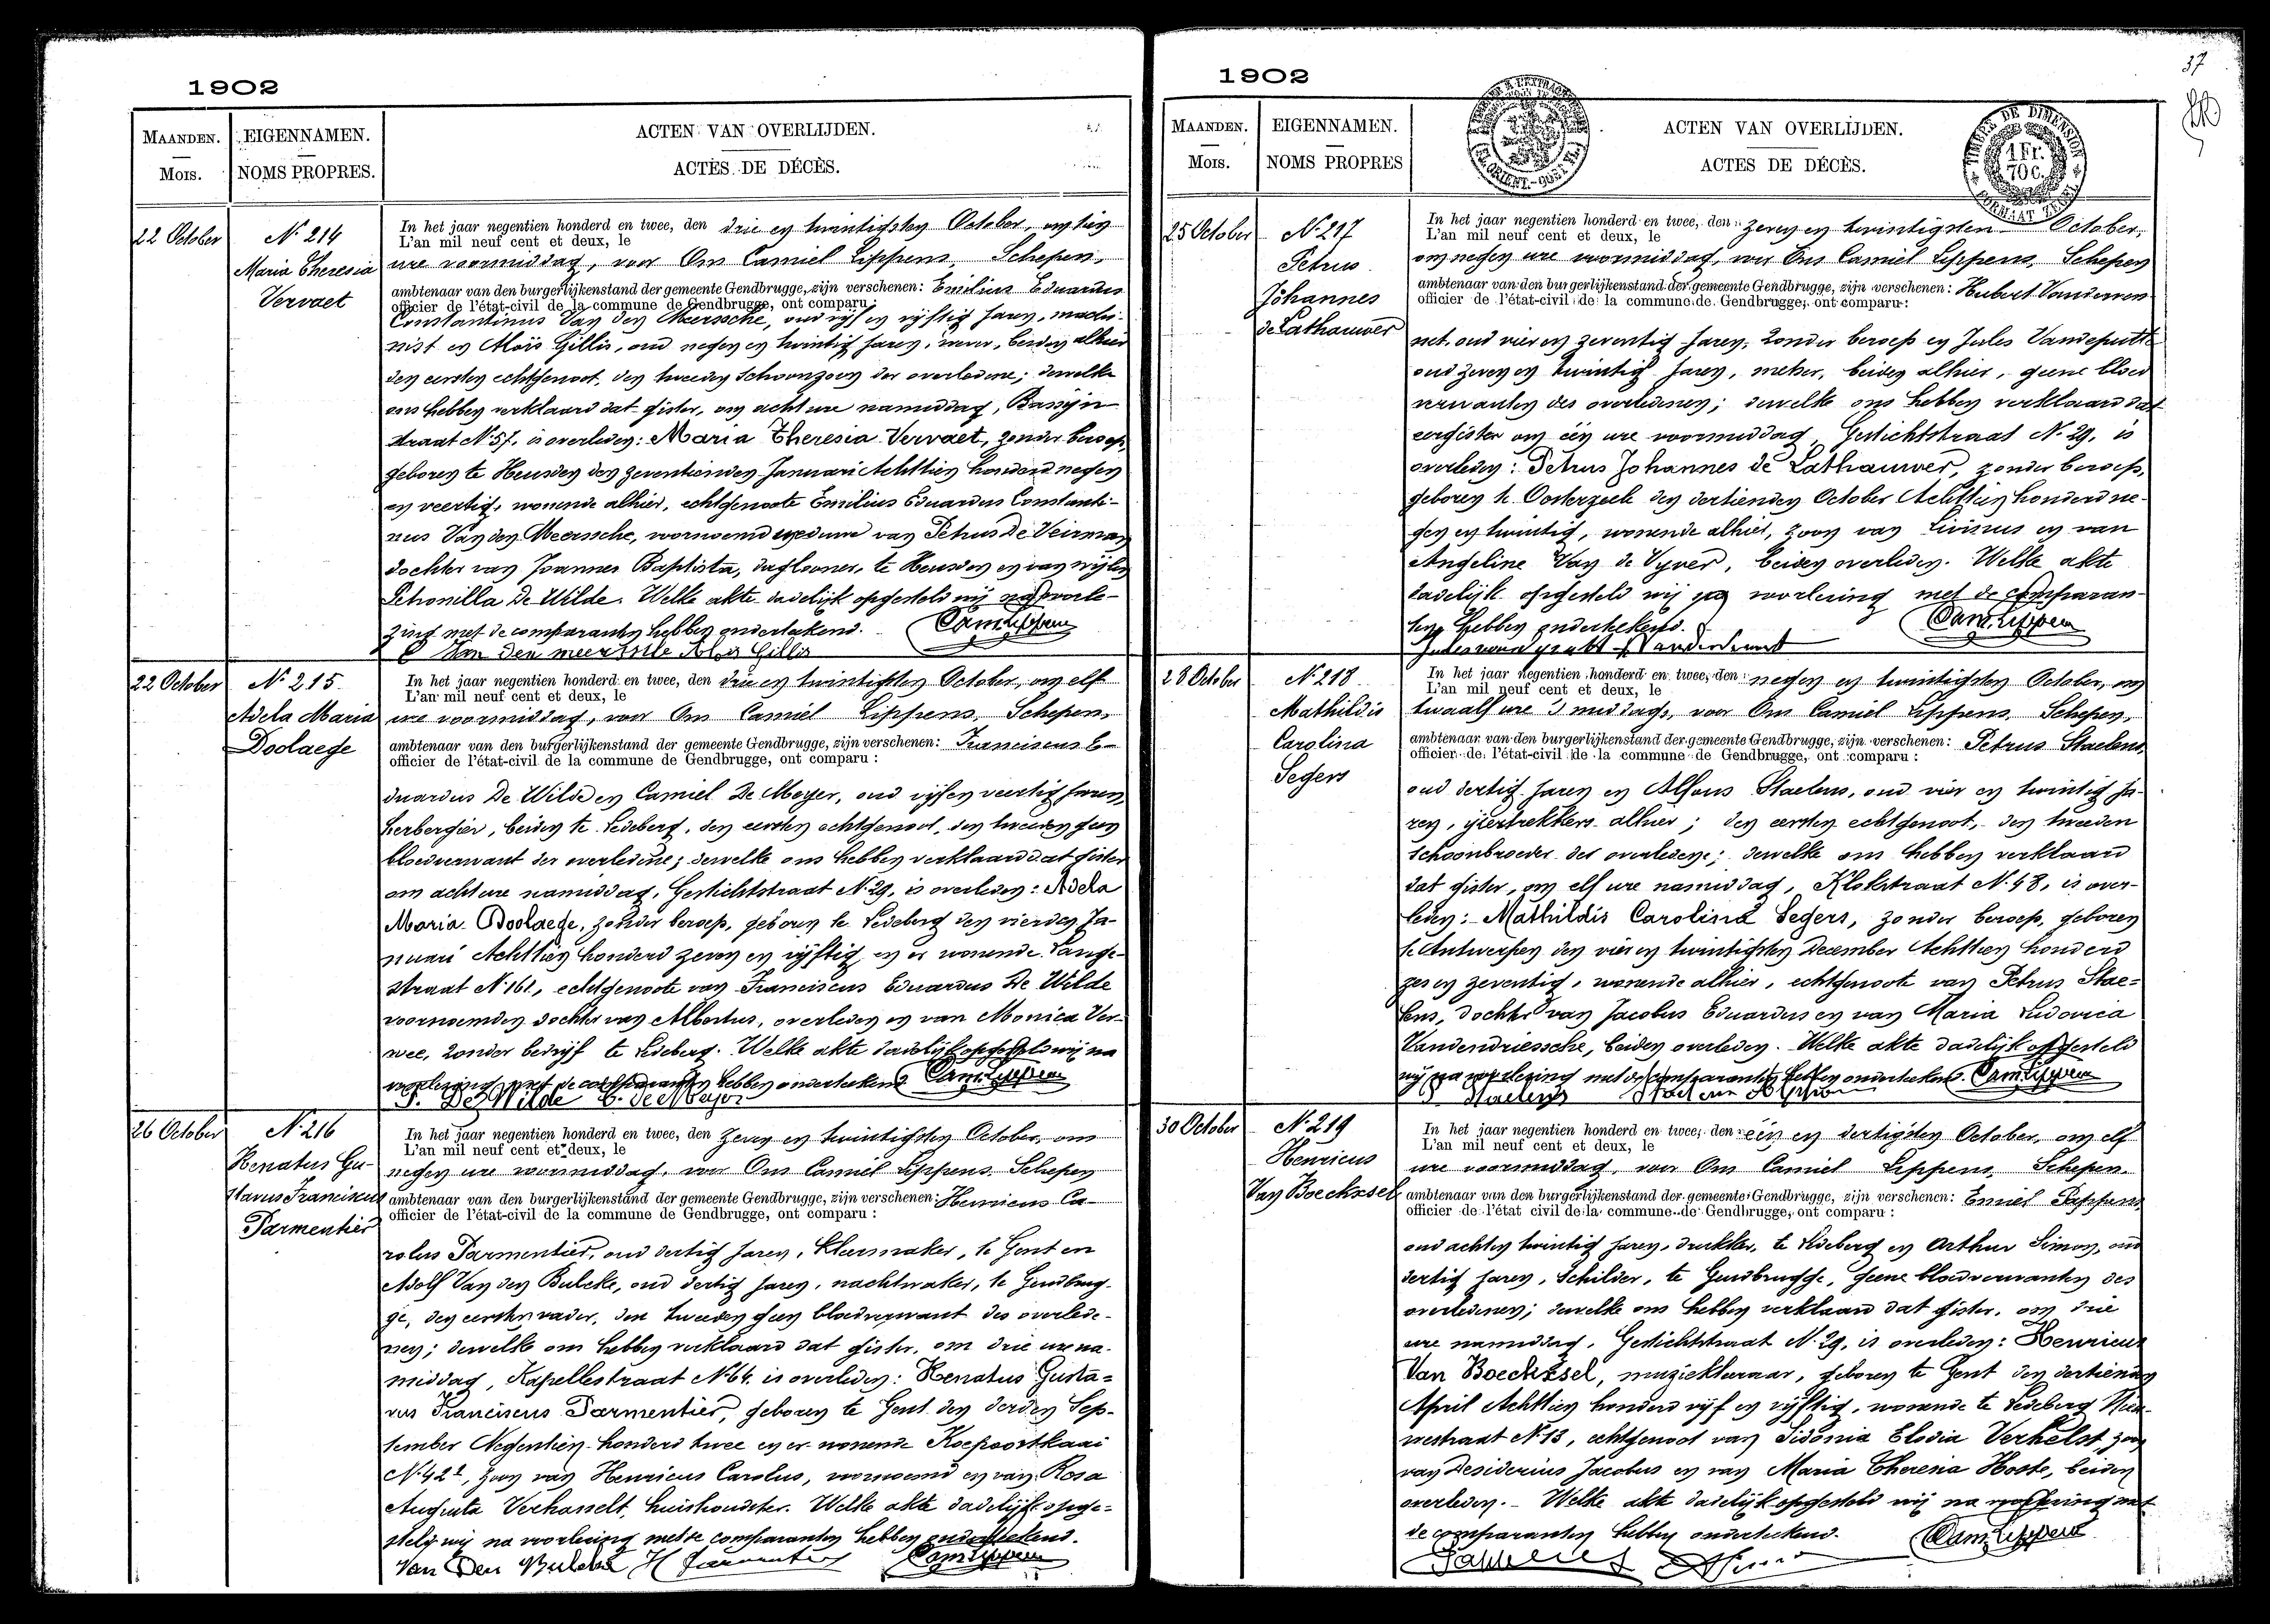 1902
MAANDEN.
Mois.
EIGENNAMEN.
NOMS PROPRES.
ACTEN VAN OVERLIJDEN.
ACTES DE DÉCÈS.
22 October
Nº 214
Maria Theresia
Vervaet
In het jaar negentien honderd en twee, den drie en twintigsten October, om tien
L'an mil neuf cent et deux, le
ure voormiddag, voor Ons Camiel Lippens, Schepen,
ambtenaar van den burgerlijkenstand der gemeente Gendbrugge, zijn verschenen: Emilius Eduardus
officier de l'état-civil de la commune de Gendbrugge, ont comparu:
Constantinus Van den Meerssche, oud vijf en vijftig Jaren, machi-
nist en Aloïs Gillis, oud negen en twintig Jaren, wever, beiden alhier
den eersten echtgenoot, den tweeden schoonzoon der overledene; dewelke
ons hebben verklaard dat gister, om acht ure namiddag, Bassijn
straat Nº 57, is overleden: Maria Theresia Vervaet, zonder beroep,
geboren te Heusden den zeventienden Januari Achttien honderd negen
en veertig, wonende alhier, echtgenoote Emilius Eduardus Constanti-
nus Van den Meerssche, voornoemd weduwe van Petrus De Veirman
dochter van Joannes Baptista, daglooner, te Heusden en van wijlen
Petronilla De Wilde. Welke akte dadelijk opgesteld wij na voorle-
zing met de comparanten hebben onderteekend. Cam. Lippens
E Van den meerssche Aloïs Gillis
22 October
Nº 215
Adela Maria
Doolaege
In het jaar negentien honderd en twee, den drie en twintigsten October, om elf
L'an mil neuf cent et deux, le
ure voormiddag, voor Ons Camiel Lippens, Schepen,
ambtenaar van den burgerlijkenstand der gemeente Gendbrugge, zijn verschenen: Franciscus E-
officier de l'état-civil de la commune de Gendbrugge, ont comparu:
duardus De Wilde en Camiel De Meyer, oud vijf en veertig Jaren,
herbergier, beiden te Ledeberg, den eersten echtgenoot, den tweeden geen
bloedverwant der overledene; dewelke ons hebben verklaard dat gister
om acht ure namiddag, Gestichtstraat Nº 29, is overleden: Adela
Maria Doolaege, zonder beroep, geboren te Ledeberg den vierden Ja-
nuari Achttien honderd zeven en vijftig en er wonende Lange-
straat Nº 161, echtgenoote van Franciscus Eduardus De Wilde
voornoemden dochter van Albertus, overleden en van Monica Ver-
wee, zonder bedrijf te Ledeberg. Welke akte dadelijk opgesteld wij na
voorlezing met de comparanten hebben onderteekend Cam. Lippens
F. De Wilde C. De Meyer
26 October
Nº 216
Renatus Gu-
stavus Franciscus
Parmentier
In het jaar negentien honderd en twee, den zeven en twintigsten October, om
L'an mil neuf cent et deux, le
negen ure voormiddag, voor Ons Camiel Lippens, Schepen
ambtenaar van den burgerlijkenstand der gemeente Gendbrugge, zijn verschenen: Henricus Ca-
officier de l'état-civil de la commune de Gendbrugge, ont comparu:
rolus Parmentier, oud dertig Jaren, kleermaker, te Gent en
Adolf Van den Bulcke, oud dertig Jaren, nachtwaker, te Gendbrug-
ge, den eersten vader, den tweeden geen bloedverwant des overlede-
nen; dewelke ons hebben verklaard dat gister, om drie ure na-
middag, Kapellestraat Nº 64. is overleden: Renatus Gusta=
vus Franciscus Parmentier, geboren te Gent den derden Sep-
tember Negentien honderd twee en er wonende Koepoortkaai
Nº 42, zoon van Henricus Carolus, voornoemd en van Rosa
Augusta Verhasselt, huishoudster. Welke akte dadelijk opge=
steld wij na voorlezing met de comparanten hebben onderteekend.
Van Den Bulcke H Parmentier Cam. Lippens
37
1902
MAANDEN.
Mois.
EIGENNAMEN.
NOMS PROPRES
ACTEN VAN OVERLIJDEN.
ACTES DE DÉCÈS.
TIMBRE DE DIMENSION
1 Fr.
70 c.
FORMAAT ZEGEL
25 October
Nº 217
Petrus
Johannes
de Lathauwer
In het jaar negentien honderd en twee, den zeven en twintigsten October,
L'an mil neuf cent et deux, le
om negen ure voormiddag, voor Ons Camiel Lippens, Schepen
ambtenaar van den burgerlijkenstand der gemeente Gendbrugge, zijn verschenen: Hubert Vanderven
officier de l'état-civil de la commune de Gendbrugge, ont comparu:
net, oud vier en zeventig Jaren, zonder beroep en Jules Vandeputte
oud zeven en twintig Jaren, metser, beiden alhier, geene bloed
verwanten des overledenen; dewelke ons hebben verklaard dat
eergister om één ure voormiddag, Gestichtstraat Nº 29, is
overleden: Petrus Johannes de Lathauwer, zonder beroep,
geboren te Oosterzeele den dertienden October Achttien honderd ne-
gen en twintig, wonende alhier, zoon van Livinus en van
Angeline Van de Vyver, beiden overleden. Welke akte
dadelijk opgesteld wij na voorlezing met de comparan-
ten hebben onderteekend. Cam. Lippens
28 October
Nº 218
Mathildis
Carolina
Segers
In het jaar negentien honderd en twee, den negen en twintigsten October, om
L'an mil neuf cent et deux, le
twaalf ure 's middags, voor Ons Camiel Lippens, Schepen,
ambtenaar van den burgerlijkenstand der gemeente Gendbrugge, zijn verschenen: Petrus Staelens,
officier de l'état-civil de la commune de Gendbrugge, ont comparu:
oud dertig Jaren en Alfons Staelens, oud vier en twintig Ja-
ren, ijzertrekkers alhier; den eersten echtgenoot, den tweeden
schoonbroeder der overledene; dewelke ons hebben verklaard
dat gister, om elf ure namiddag, Klokstraat Nº 48, is over-
leden: Mathildis Carolina Segers, zonder beroep, geboren
te Antwerpen den vier en twintigsten December Achttien honderd
zes en zeventig, wonende alhier, echtgenoote van Petrus Stae=
lens, dochter van Jacobus Eduardus en van Maria Ludovica
Vandendriessche, beiden overleden. Welke akte dadelijk opgesteld
wij na voorlezing met de comparanten hebben onderteekend. Cam. Lippens
P Staelens Staelens Alphons
30 October
Nº 219
Henricus
Van Boeckxsel
In het jaar negentien honderd en twee, den één en dertigsten October, om elf
L'an mil neuf cent et deux, le
ure voormiddag, voor Ons Camiel Lippens, Schepen.
ambtenaar van den burgerlijkenstand der gemeente Gendbrugge, zijn verschenen: Emiel Pappens,
officier de l'état civil de la commune de Gendbrugge, ont comparu:
oud acht en twintig Jaren, drukker, te Ledeberg en Arthur Simon, oud
dertig Jaren, Schilder, te Gendbrugge, geene bloedverwanten des
overledenen; dewelke ons hebben verklaard dat gister, om drie
ure namiddag, Gestichtstraat Nº 29, is overleden: Henricus
Van Boeckxsel, muziekleeraar, geboren te Gent den dertienden
April Achttien honderd vijf en vijftig, wonende te Ledeberg Nieu-
westraat Nº 13, echtgenoot van Sidonia Elodia Verhelst, zoon
van Desiderius Jacobus en van Maria Theresia Hoste, beiden
overleden. Welke akte dadelijk opgesteld wij na voorlezing met
de comparanten hebben onderteekend. Cam. Lippens
Pappens A Simon